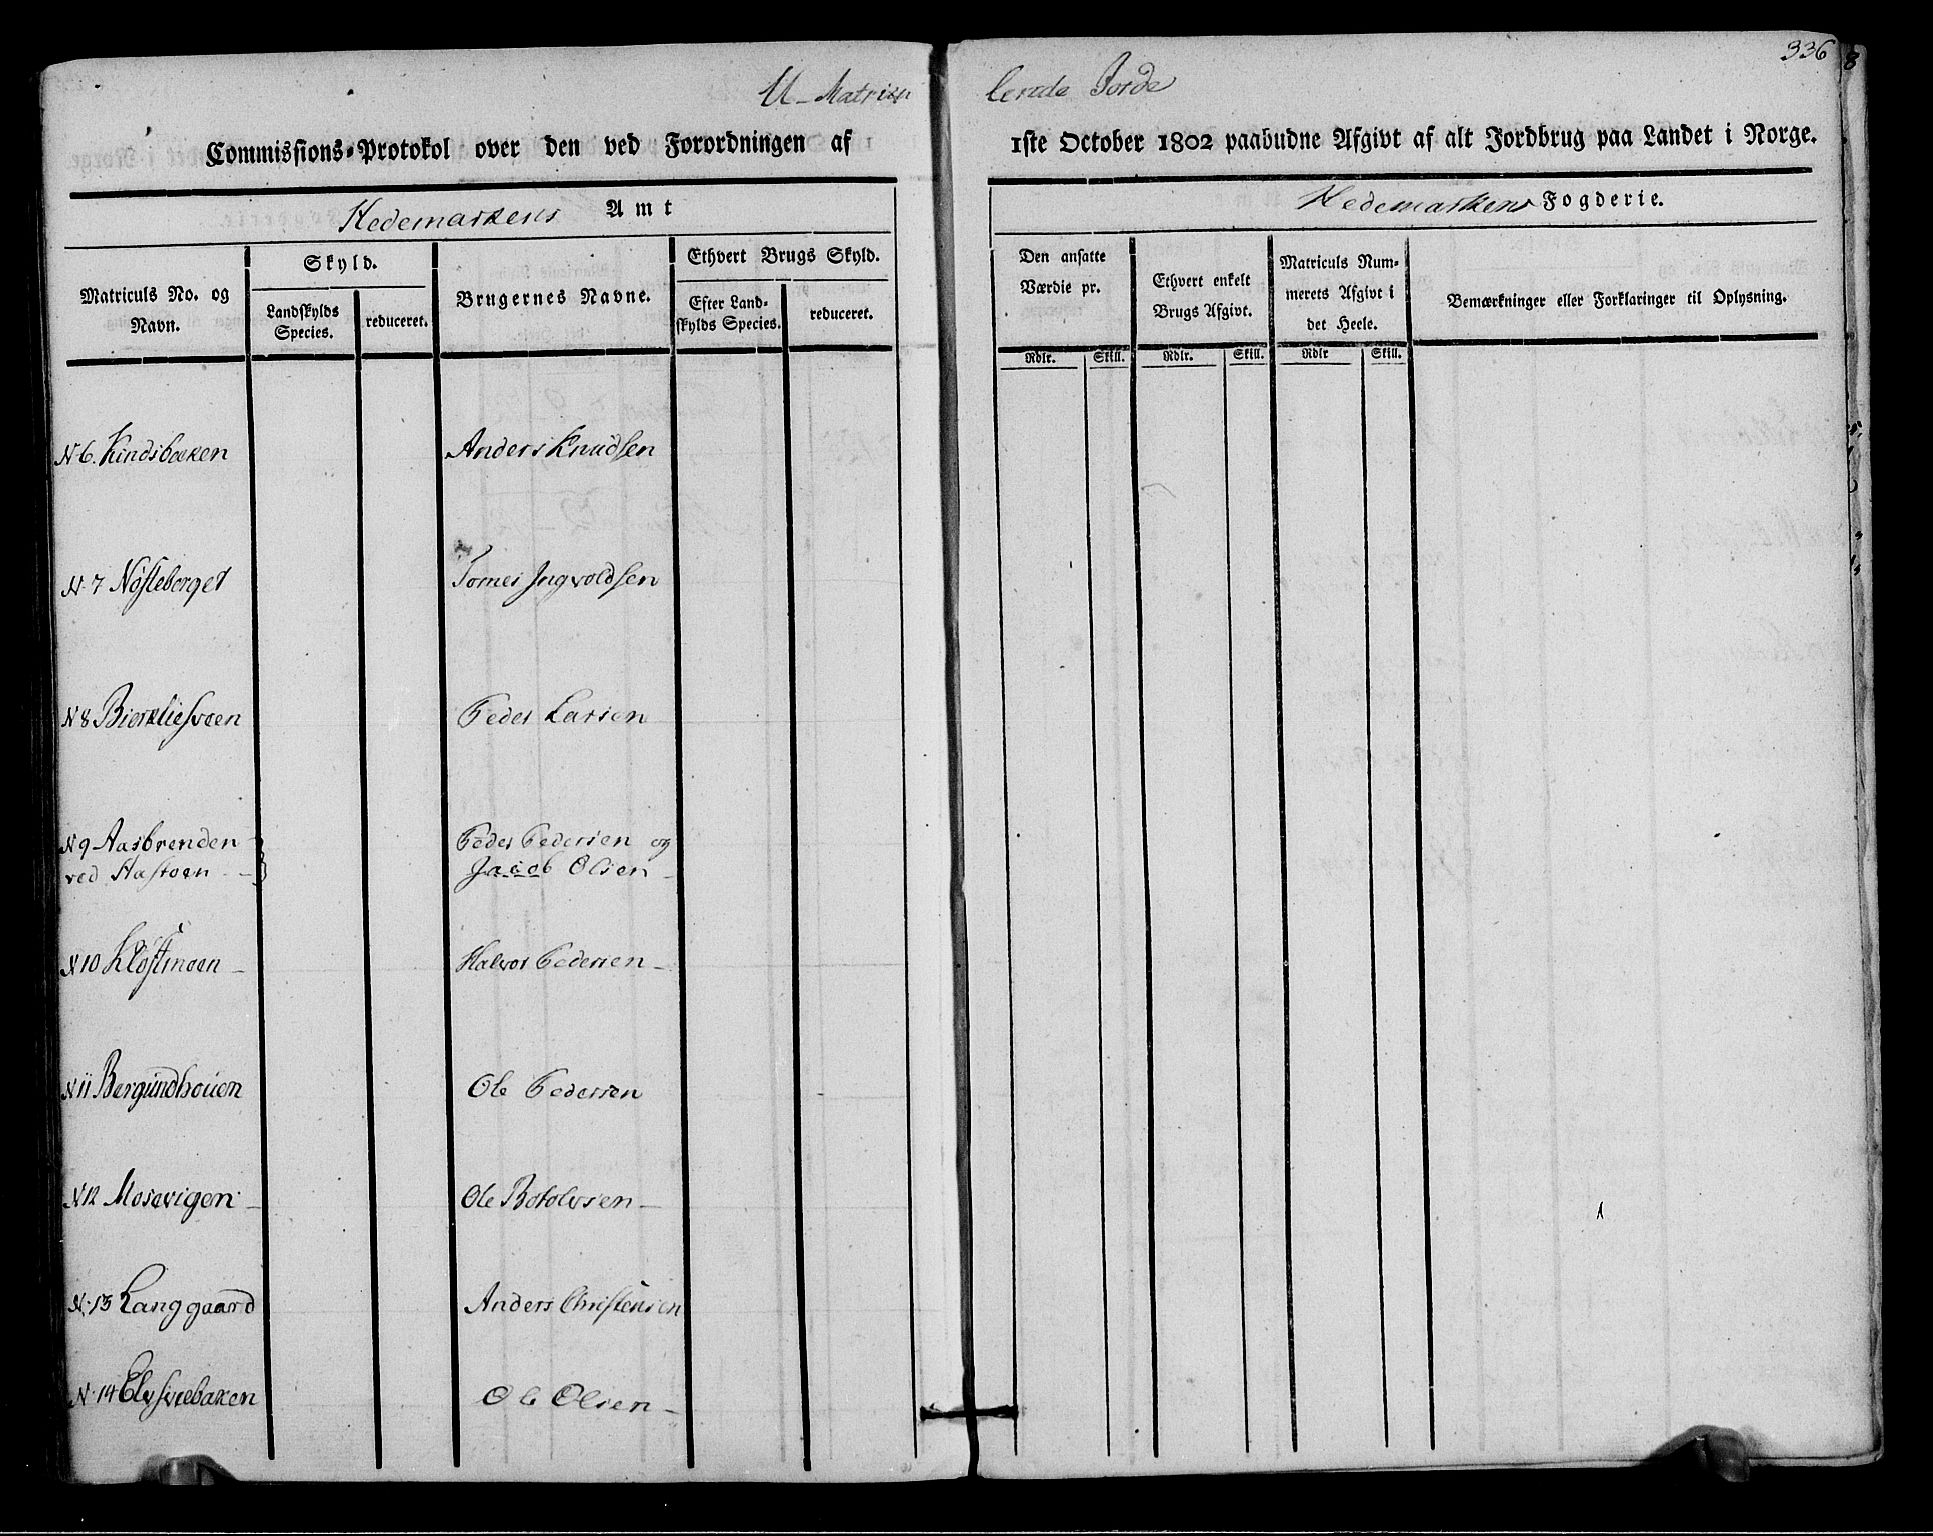 336
U-Matricu lerede Jorde
Commissions-Protokol over den ved Forordningen af 1ste October 1802 paabudne Afgivt af alt Jordbrug paa Landet i Norge.
Hedemarkens Amt
Hedemarkens Fogderie.
Matriculs No. og Navn.
Skyld.
Landskylds Species.
reduceret.
Brugernes Navne.
Ethvert Brugs Skyld.
Efter Landskylds Species.
reduceret.
Den ansatte Værdie pr.
Ethvert enkelt Brugs Afgivt.
Matriculs Nummerets Afgivt i det Heele.
Bemærkninger eller Forklaringer til Oplysning.
Rdlr. Skill. Rdlr. Skill. Rdlr Skill.
N 6. Kindsbaken Anders Knudsen
N 7 Nösteberget Tomes Ingvoldsen
N 8 Bierkliesveen Peder Larsen
N 9 Aasbrenden Peder Pedersen og
ved Hastoen - Jacob Olsen -
N 10 Klöftmoen - Halvor Pedersen -
N 11 Bergundhouen Ole Pedersen
N 12 Mosevigen - Ole Botolvsen -
N. 13 Langgaard Anders Christensen
N. 14 Elvsviebaken Ole Olsen -